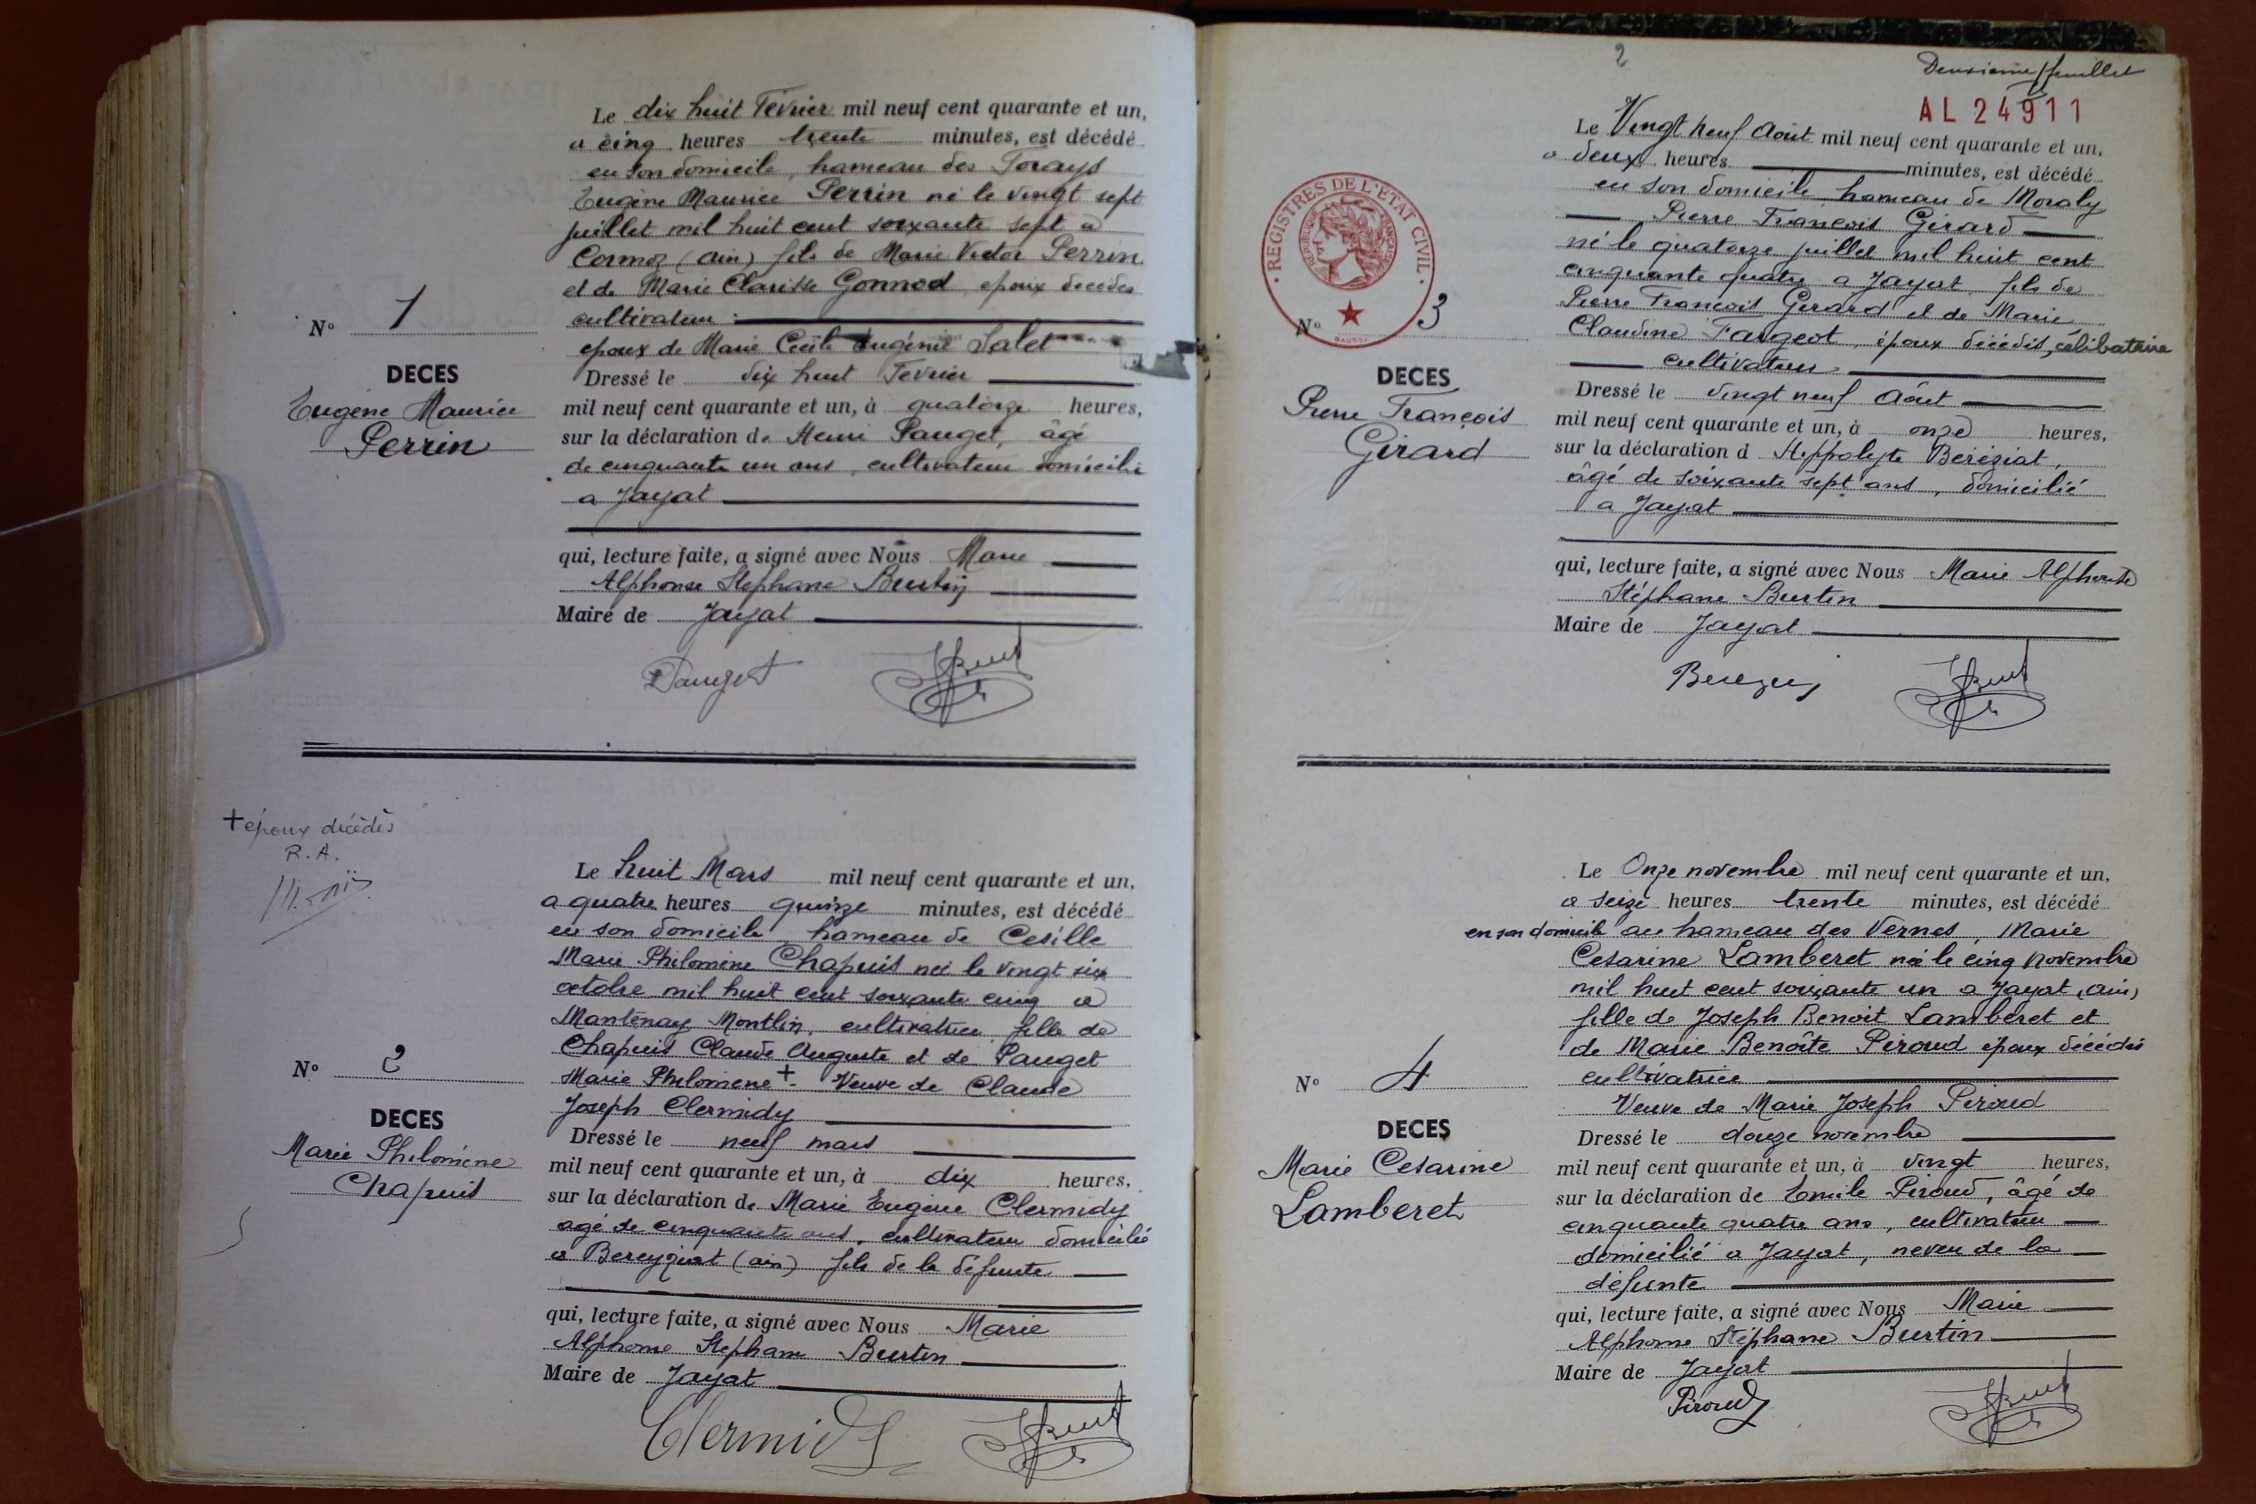 Le dix huit Février mil neuf cent quarante et un,
a cinq heures trente minutes, est décédé
en son domicile, hameau des Forays
Eugène Maurice Perrin né le vingt sept
juillet mil huit cent soixante sept a
Cormoz (Ain) fils de Marie Victor Perrin
et de Marie Clarisse Gonnod, epoux decedes
cultivateur
epoux de Marie Cecile Eugénie Salet
N° 1
DECES
Eugène Maurice
Perrin
Dressé le dix huit Fevrier
mil neuf cent quarante et un, à quatorze heures,
sur la déclaration de Henri Pauget, âgé
de cinquante un ans, cultivateur domicilié
a Jayat
qui, lecture faite, a signé avec Nous Marie
Alphonse Stephane Burtin
Maire de Jayat
Pauget
+ époux décédés
R.A.
Le huit Mars mil neuf cent quarante et un,
a quatre heures quinze minutes, est décédé
en son domicile hameau de Cesille
Marie Philomène Chapuis née le vingt six
octobre mil huit cent soixante cinq a
Mantenay Montlin, cultivatrice fille de
Chapuis Claude Auguste et de Pauget
Marie Philomene + Veuve de Claude
Joseph Clermidy
N° 2
DECES
Marie Philomène
Chapuis
Dressé le neuf mars
mil neuf cent quarante et un, à dix heures,
sur la déclaration de Marie Eugène Clermidy
agé de cinquante ans, cultivateur domicilié
a Bereyziat (ain) fils de la défunte
qui, lecture faite, a signé avec Nous Marie
Alphonse Stephane Burtin
Maire de Jayat
Clermidy
2
Deuxième feuillet
AL 24911
Le Vingt neuf Août mil neuf cent quarante et un,
a deux heures minutes, est décédé
en son domicile hameau de Moraly
Pierre François Girard
né le quatorze juillet mil huit cent
cinquante quatre a Jayat fils de
Pierre François Girard et de Marie
Claudine Fargeot, époux décédés, célibataire
cultivateur
REGISTRES DE L'ETAT CIVIL
REPUBLIQUE FRANÇAISE
N° 3
DECES
Pierre François
Girard
Dressé le vingt neuf Août
mil neuf cent quarante et un, à onze heures,
sur la déclaration d Hippolyte Bereziat,
âgé de soixante sept ans, domicilié
a Jayat
qui, lecture faite, a signé avec Nous Marie Alphonse
Stéphane Burtin
Maire de Jayat
Le Onze novembre mil neuf cent quarante et un,
a seize heures trente minutes, est décédé
en son domicile au hameau des Vernes, Marie
Cesarine Lamberet née le cinq novembre
mil huit cent soixante un a Jayat (ain)
fille de Joseph Benoit Lamberet et
de Marie Benoîte Piroud époux décédés
cultivatrice
Veuve de Marie Joseph Piroud
N° 4
DECES
Marie Cesarine
Lamberet
Dressé le douze novembre
mil neuf cent quarante et un, à vingt heures,
sur la déclaration de Emile Piroud, âgé de
cinquante quatre ans, cultivateur
domicilié a Jayat, neveu de la
défunte
qui, lecture faite, a signé avec Nous Marie
Alphonse Stéphane Burtin
Maire de Jayat
Piroud